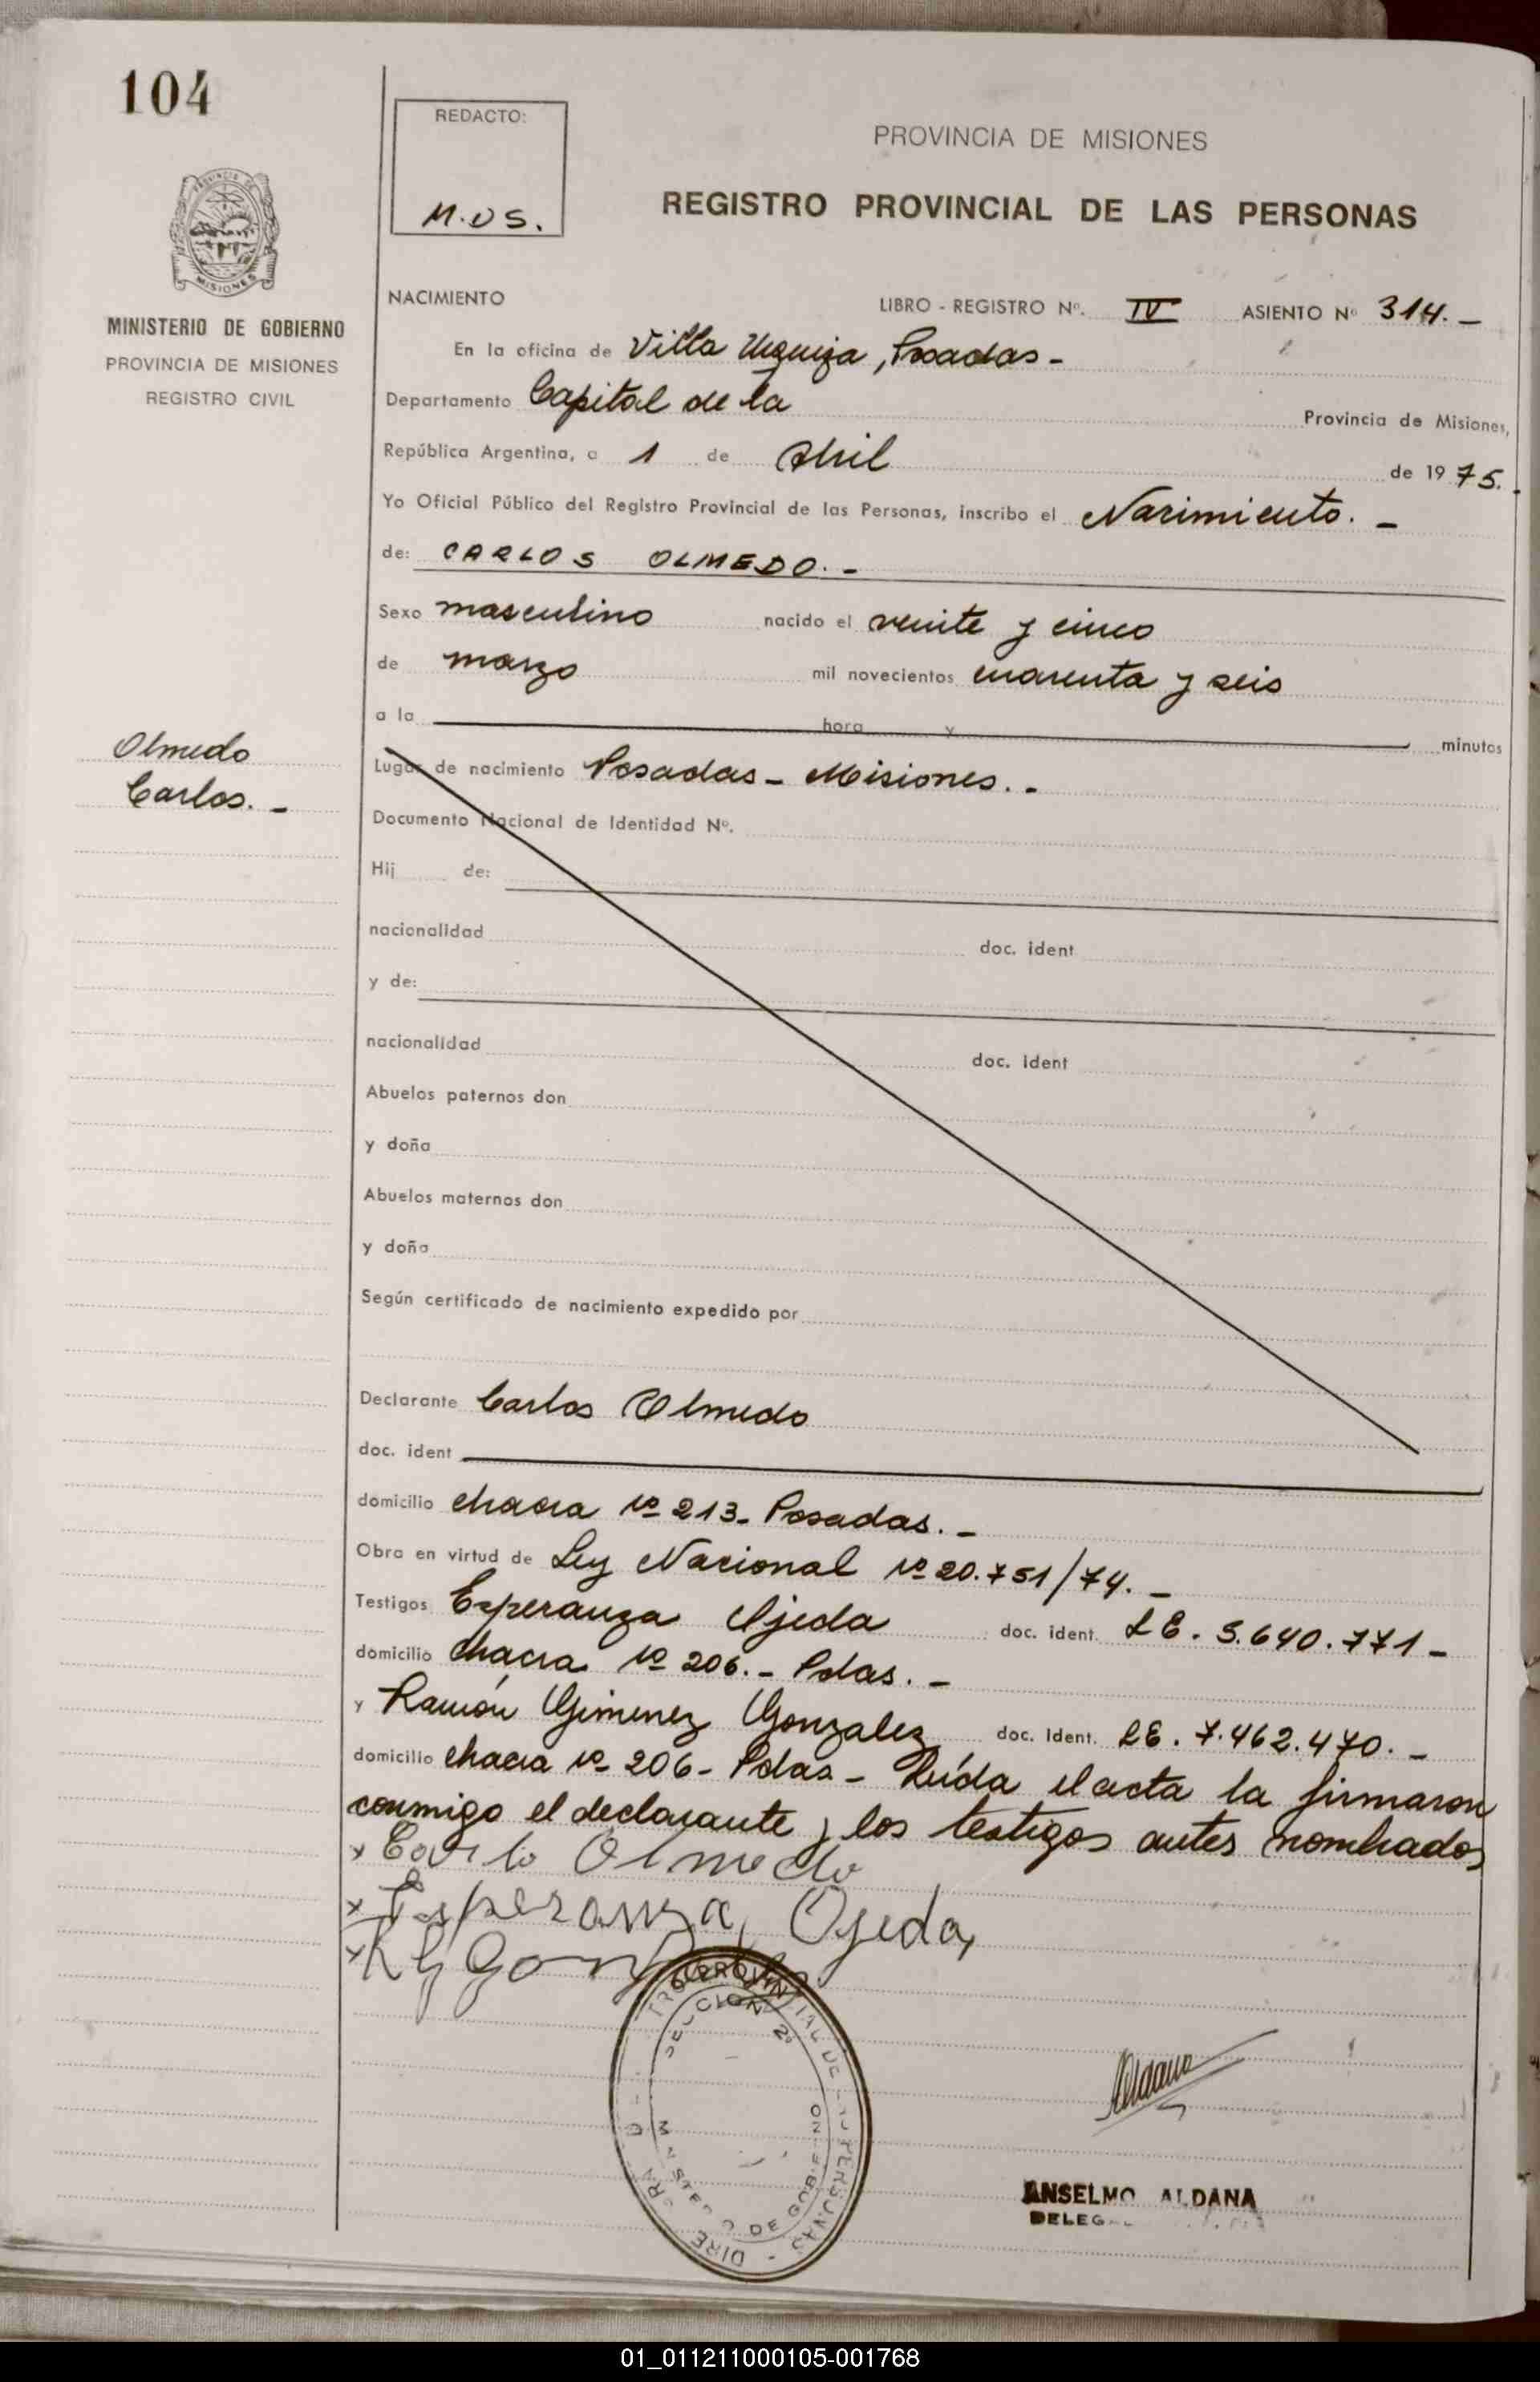 104
REDACTO:
M.D S.
PROVINCIA DE MISIONES
REGISTRO PROVINCIAL DE LAS PERSONAS
PROVINCIA DE
MISIONES
MINISTERIO DE GOBIERNO
PROVINCIA DE MISIONES
REGISTRO CIVIL
NACIMIENTO LIBRO - REGISTRO Nº. IV ASIENTO Nº 314. -
En la oficina de Villa Urquiza, Posadas -
Departamento Capital de la Provincia de Misiones,
República Argentina, a 1 de Abril de 19 75. -
Yo Oficial Público del Registro Provincial de las Personas, inscribo el Nacimiento. -
de: CARLOS OLMEDO. -
Sexo masculino nacido el veinte y cinco
de marzo mil novecientos cuarenta y seis
a la hora y minutos
Olmedo
Carlos. -
Lugar de nacimiento Posadas - Misiones. -
Documento Nacional de Identidad Nº.
Hij de:
nacionalidad doc. ident
y de:
nacionalidad doc. ident
Abuelos paternos don
y doña
Abuelos maternos don
y doña
Según certificado de nacimiento expedido por
Declarante Carlos Olmedo
doc. ident
domicilio chacra Nº 213- Posadas. -
Obra en virtud de Ley Nacional Nº 20.751/74. -
Testigos Esperanza Ojeda doc. ident. LE. 5.640.771 -
domicilio chacra Nº 206. - Pdas. -
y Ramón Gimenez Gonzalez doc. Ident. LE. 7.462.470. -
domicilio chacra Nº 206- Pdas - Leída el acta la firmaron
conmigo el declarante y los testigos antes nombrados
x Carlo Olmedo
x Esperanza Ojeda
x R G Gonzalez
SECCION 2º
MINISTERIO DE GOBIERNO
ANSELMO ALDANA
01_011211000105-001768